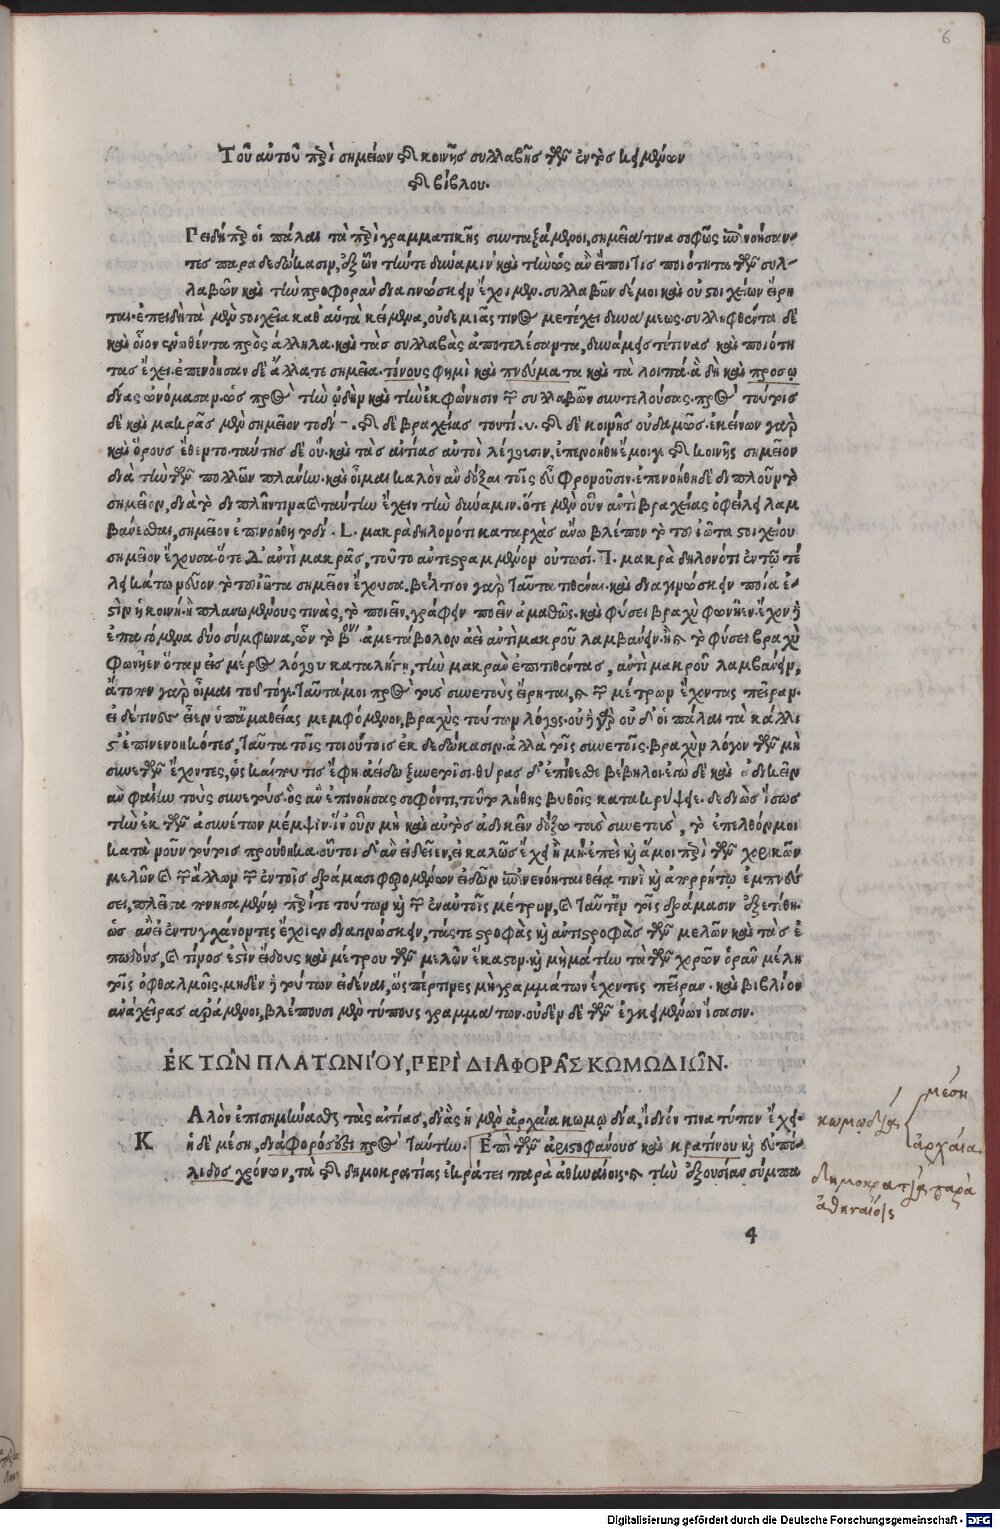 6
Τοῦ αὐτοῦ περὶ σημείων τῆς κοινῆς συλλαβῆς τῶν ἐντὸς κειμένων
τῆς βίβλου.
Γειδήπερ οἱ πάλαι τὰ περὶ γραμματικῆς συνταξάμενοι, σημεῖα τινα σοφῶς ὑπονοήσαν-
τες παραδεδώκασιν, ἐξ ὧν τήν τε δύναμιν καὶ τὴν ὡς ἂν εἴποι τις ποιότητα τῶν συλ-
λαβῶν καὶ τὴν προφορὰν διαγινώσκειν ἔχοιμεν. συλλαβῶν δέ μοι καὶ οὐ στοιχείων εἴρη
ται. ἐπειδὴ τὰ μὲν στοιχεῖα καθ' αὑτὰ κείμενα, οὐδεμιᾶς τινος μετέχει δυνάμεως. συλληφθέντα δὲ
καὶ οἷον ἑνωθέντα πρὸς ἄλληλα. καὶ τὰς συλλαβὰς ἀποτελέσαντα, δυνάμεις τέ τινας καὶ ποιότη
τας ἔχει. ἐπενόησαν δὲ ἄλλα τε σημεῖα. τόνους φημὶ καὶ πνεύματα καὶ τὰ λοιπά. ἃ δὴ καὶ προσῳ
δίας ὠνόμασαν. ὡς πρὸς τὴν ᾠδὴν καὶ τὴν ἐκφώνησιν τῶν συλλαβῶν συντελούσας. πρὸς τούτοις
δὲ καὶ μακρᾶς μὲν σημεῖον τοδί – . τῆς δὲ βραχείας τουτί . υ . τῆς δὲ κοινῆς οὐδαμῶς. ἐκείνων γὰρ
καὶ ὅρους ἔθεντο. ταύτης δὲ οὔ. καὶ τὰς αἰτίας αὐτοὶ λέγουσιν. ἐπενοήθη ἔμοιγε τῆς κοινῆς σημεῖον
διὰ τὴν τῶν πολλῶν πλάνην. καὶ οἶμαι καλὸν ἂν δόξαι τοῖς εὖ φρονοῦσιν. ἐπενοήθη δὲ διπλοῦν τὸ
σημεῖον, διὰ τὸ διπλῆν τινα καὶ ταύτην ἔχειν τὴν δύναμιν. ὅτε μὲν οὖν ἀντὶ βραχείας ὀφείλει λαμ
βάνεσθαι, σημεῖον ἐπινοήθη τοδί . L . μακρὰ δηλονότι καταρχὰς ἄνω βλέπον τὸ τοῦ ἰῶτα στοιχείου
σημεῖον ἔχουσα. ὅτε δ' ἀντὶ μακρᾶς, τοῦτο ἀντεστραμμένον οὑτωσί.
λει κάτω νεῦον τὸ τοῦ ἰῶτα σημεῖον ἔχουσα. βέλτιον γὰρ ταῦτα τιθέναι. καὶ διαγινώσκειν ποία ἐ-
στὶν ἡ κοινὴ. ἢ πλανωμένους τινὰς, τὸ ποιεῖν, γράφειν ποεῖν ἀμαθῶς. καὶ φύσει βραχὺ φωνῆεν ἔχον ἢ
ἐπαγόμενα δύο σύμφωνα, ὧν τὸ βον. ἀμετάβολον ἀεὶ ἀντὶ μακροῦ λαμβάνειν. ἢ καὶ τὸ φύσει βραχὺ
φωνῆεν ὅταν εἰς μέρος λόγου καταλήγῃ, τὴν μακρὰν ἐπιτιθέντας, ἀντὶ μακροῦ λαμβάνειν,
ἄτοπον γὰρ οἶμαι τοῦτόγε. ταῦτά μοι πρὸς τοὺς συνετοὺς εἴρηται, καὶ τῶν μέτρων ἔχοντας πεῖραν.
εἰ δέ τινες εἶεν ὑπ' ἀμαθείας μεμφόμενοι, βραχὺς τούτων λόγος. οὐ γὰρ οὐδ' οἱ πάλαι τὰ κάλλι
στ' ἐπινενοηκότες, ταῦτα τοῖς τοιούτοις ἐκδεδώκασιν. ἀλλὰ τοῖς συνετοῖς. βραχὺν λόγον τῶν μὴ
συνετῶν ἔχοντες, ὡς καί πού τις ἔφη ἀείδω ξυνετοῖσι. θύρας δ' ἐπίθεσθε βέβηλοι. ἐγὼ δὲ καὶ ἀδικεῖν
ἂν φαίην τοὺς συνετούς. ὃς ἂν ἐπινοήσας σοφόν τι, τοῦτο λήθης βυθοῖς κατακρύψῃ. δεδιὼς ἴσως
τὴν ἐκ τῶν ἀσυνέτων μέμψιν. ἵν' οὖν μὴ καὶ αὐτὸς ἀδικεῖν δόξω τοὺς συνετοὺς, τὸ ἐπελθόν μοι
κατὰ νοῦν τούτοις προύθηκα. οὗτοι δ' ἂν εἰδεῖεν, εἰ καλῶς ἔχει ἢ μή. ἐπεὶ καὶ ἅμοι περὶ τῶν χορικῶν
μελῶν καὶ τῶν ἄλλων τῶν ἐν τοῖς δράμασι φερομένων εἰδῶν ὑπονενόηται θείᾳ τινὶ καὶ ἀπορρήτῳ ἐμπνεύ
σει, πλεῖστα πονησαμένῳ περί τε τούτων καὶ τῶν ἐν αὐτοῖς μέτρων, καὶ ταῦτ' ἐν τοῖς δράμασιν ἐξετέθη.
ὡς ἂν εἰ ἐντυγχάνοντες ἔχοιεν διαγινώσκειν, τάς τε στροφὰς καὶ ἀντιστροφὰς τῶν μελῶν καὶ τὰς ἐ
πῳδούς, καὶ τίνος ἐστὶν εἴδους καὶ μέτρου τῶν μελῶν ἕκαστον. καὶ μὴ μάτην τὰ τῶν χορῶν ὁρᾶν μέλη
τοῖς ὀφθαλμοῖς. μηδὲν ἢ τούτων εἰδέναι, ὥσπερ τινὲς μὴ γραμμάτων ἔχοντες πεῖραν. καὶ βιβλίον
ἀνὰ χεῖρας ἀράμενοι, βλέπουσι μὲν τύπους γραμμάτων. οὐδὲν δὲ τῶν ἐγκειμένων ἴσασιν.
ἘΚ ΤΩ͂Ν ΠΛΑΤΩΝΙ΄ΟΥ, ΓΕΡΙ` ΔΙΑΦΟΡΑ͂Σ ΚΩΜΩΔΙΩ͂Ν.
Κ Αλὸν ἐπισημήνασθαι τὰς αἰτίας, δι' ἃς ἡ μὲν ἀρχαία κωμῳδία, ἴδιόν τινα τύπον ἔχει.
ἡ δὲ μέση, διάφορός ἐστι πρὸς ταύτην. Ἐπὶ τῶν ἀριστοφάνους καὶ κρατίνου καὶ εὐπό-
λιδος χρόνων, τὰ τῆς δημοκρατίας ἐκράτει παρὰ ἀθηναίοις. καὶ τὴν ἐξουσίαν σύμπα
4
μέση
κωμῳδία
ἀρχαία
δημοκρατία παρὰ
ἀθηναίοις
Digitalisierung gefördert durch die Deutsche Forschungsgemeinschaft - DFG